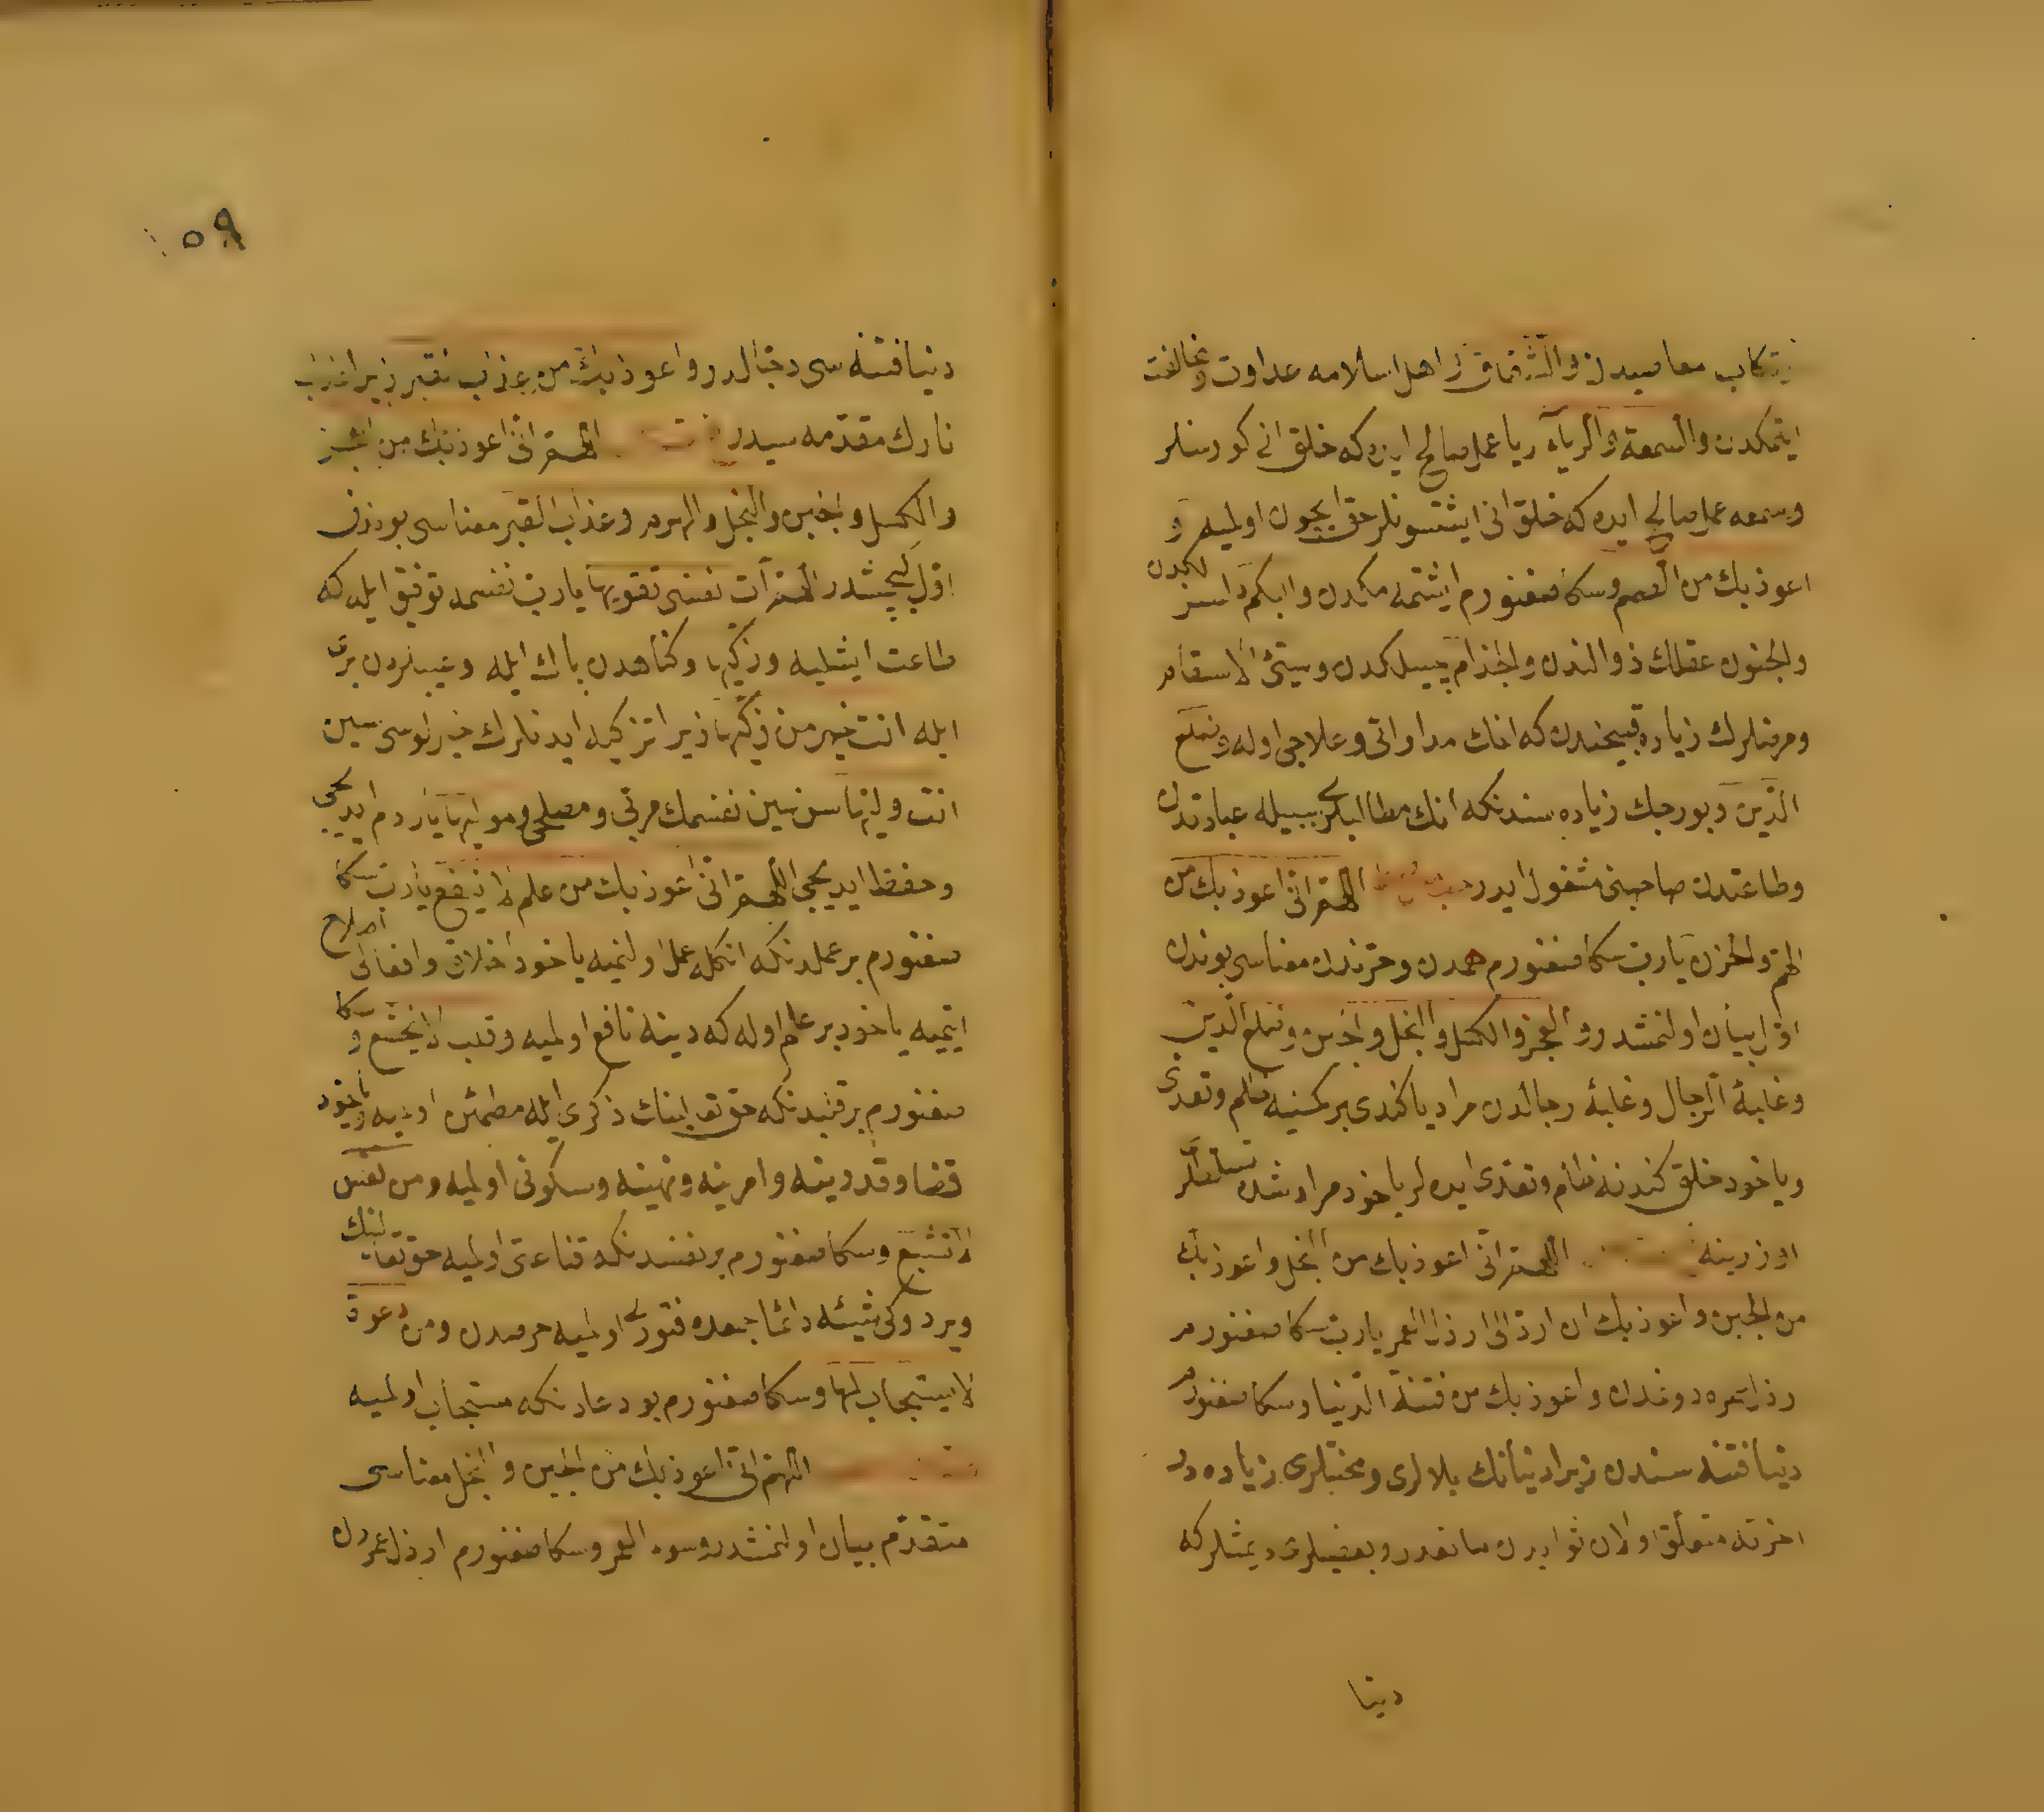 ارتكاب معاصيدن والشقاق اهل اسلامه عداوت ومخالفت
ايتمكدن والسمعة والرياء ريا عمل صالح ايده كه خلق انى كورسنلر
وسمعه عمل صالح ايده كه خلق انى ايشتسونلر حق ايچون اولميه و
اعوذ بك من الصمم وسكا صغنورم ايشتمه مكدن وابكم دلسز لكدن
والجنون عقلك ذوالندن والجذام مبسل كمدن وسيئ الاسقام
ومرضلرك زياده قبيحندن كه انك مداواتى وعلاجى اوله وضلع
الدين وبورجك زياده سندنكه انك مطالبلرى سببيله عبادتدن
وطاعتدن صاحبنى مشغول ايدر اللهم انى اعوذ بك من
الهم والحزن يارب سكا صغنورم همدن وحزندن معناسى بوندن
اول بيان اولنمشدر والعجز والكسل والبخل والجبن وضلع الدين
وغلبة الرجال وغلبۀ رجالدن مراد يا كندى بر كسنيه ظلم وتعدى
وياخود خلق كندنه ظلم وتعدى ايده لر ياخود مراد شده تسلطلر
اوزرينه اللهم انى اعوذ بك من البخل واعوذ بك
من الجبن واعوذ بك ان ارد الى ارذل العمر يارب سكا صغنورم
رذل عمره دونمدن واعوذ بك من فتنة الدنيا وسكا صغنورم
دنيا فتنه سندن زيرا دنيانك بلالرى ومحنتلرى زياده در
اخرته متعلق اولان ثوابدن مانعدر وبعضيلرى ديمشلر كه
دنيا
٥٩
دنيا فتنه سى دجالدر واعوذ بك من عذاب القبر زيرا عذاب
نارك مقدمه سيدر اللهم انى اعوذ بك من العجز
والكسل والجبن والبخل والهرم وعذاب القبر معناسى بوندن
اول كچمشدر اللهم آت نفسى تقويها يارب نفسمه توفيق ايله كه
طاعت ايشليه وزكيها وكناهدن پاك ايله وعيبلردن برى
ايله انت خير من زكيها زيرا تزكيه ايدنلرك خيرلوسى سين
انت وليها سن سين نفسمك مربى ومصلحى ومواليها ياردم ايديجى
وحفظ ايديجى اللهم انى اعوذ بك من علم لا ينفع يارب سكا
صغنورم بر علمدنكه انكله عمل اولنميه ياخود اخلاق وافعالى اصلاح
ايتميه ياخود بر علم اوله كه دينه نافع اولميه وقلب لا يخشع وسكا
صغنورم بر قلبدنكه حق تعالينك ذكرى ايله مطمئن اولميه ياخود
قضا وقدرينه وامرينه ونهينه وسكونى اولميه ومن نفس
لا تشبع وسكا صغنورم بر نفسدنكه قناعتى اولميه حق تعالينك
ويردوكى شيئه دائما جمعده فتورى اولميه حرصدن ومن دعوة
لا يستجاب لها وسكا صغنورم بو دعادنكه مستجاب اولميه
اللهم انى اعوذ بك من الجبن والبخل معناسى
متقدم بيان اولنمشدر وسوء العمر وسكا صغنورم ارذل عمردن